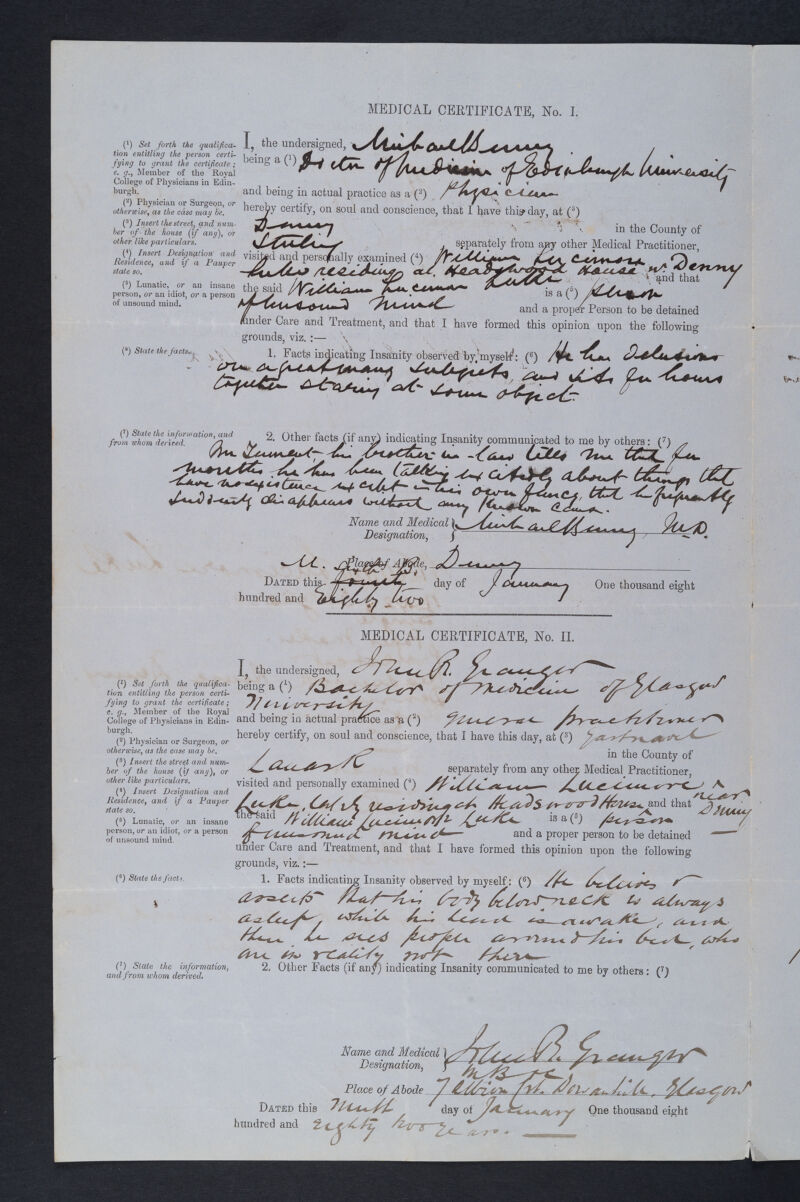 MEDICAL CERTIFICATE, No. I.
(1) Set forth the qualifica-
tion entitling the person certi-
fying to grant the certificate;
e. g., Member of the Royal
College of Physicians in Edin-
burgh.
(2) Physician or Surgeon, or
otherwise, as the case may be.
(3) Insert the street, and num-
ber of the house (if any), or
other like particulars.
(4) Insert Designation and
Residence, and if a Pauper
state so.
(5) Lunatic, or an insane
person, or an idiot, or a person
of unsound mind.
I, the undersigned, Michael Benny
being a (1) Doctor of Medicine of Edinburgh University
and being in actual practice as a (2) Physician
hereby certify, on soul and conscience, that I have this day, at (3)
Denny in the County of
Stirling separately from any other Medical Practitioner,
visited and personally examined (4) William
Luke residing at Headswood House nr Denny
and that
the said William Luke is a (5) person
of unsound mind and a proper Person to be detained
under Care and Treatment, and that I have formed this opinion upon the following
grounds, viz. :—
(6) State the facts.
1. Facts indicating Insanity observed by myself: (6) He has delusions
on a great many subjects, and sits for hours
together staring at some object.
(7) State the information, and
from whom derived.
2. Other facts (if any) indicating Insanity communicated to me by others: (7)
Mr Tennent, his brother-in-law tells me that for
months he has been talking excitedly about things that
have no existence except in his own fancy, that he frequently
suddenly disappears without any known cause.
Name and Medical
Designation,
Michael Benny, M.D.
Place of Abode, Denny
M. B.
DATED this fourth sixth day of January One thousand eight
hundred and Eighty two
MEDICAL CERTIFICATE, No. II.
(1) Set forth the qualifica-
tion entitling the person certi-
fying to grant the certificate;
e. g., Member of the Royal
College of Physicians in Edin-
burgh.
(2) Physician or Surgeon, or
otherwise, as the case may be.
(3) Insert the street and num-
ber of the house (if any), or
other like particulars.
(4) Insert Designation and
Residence, and if a Pauper
state so.
(5) Lunatic, or an insane
person, or an idiot, or a person
of unsound mind.
I, the undersigned, John R. Granger
being a (1) Bachelor of Medicine of Glasgow
University
and being in actual practice as a (2) general practitioner
hereby certify, on soul and conscience, that I have this day, at (3) Gartnavel
in the County of
Lanark separately from any other Medical Practitioner,
visited and personally examined (4) William Lucimore
Luke, lately residing at Headswood House near Denny and that
the said William Lucimore Luke is a (5) person
of unsound mind and a proper person to be detained
under Care and Treatment, and that I have formed this opinion upon the following
grounds, viz. :—
(6) State the facts.
1. Facts indicating Insanity observed by myself: (6) He believes &
asserts that his body below neck is always
asleep, while his head is awake, and
then he sees people around his bed, who
are in reality not there
(7) State the information,
and from whom derived.
2. Other Facts (if any) indicating Insanity communicated to me by others: (7)
Name and Medical
Designation,
John R. Granger
M.B. &c
Place of Abode 7 Albion Crt. Dowanhill. Glasgow
DATED this Ninth day of January One thousand eight
hundred and eighty two years.